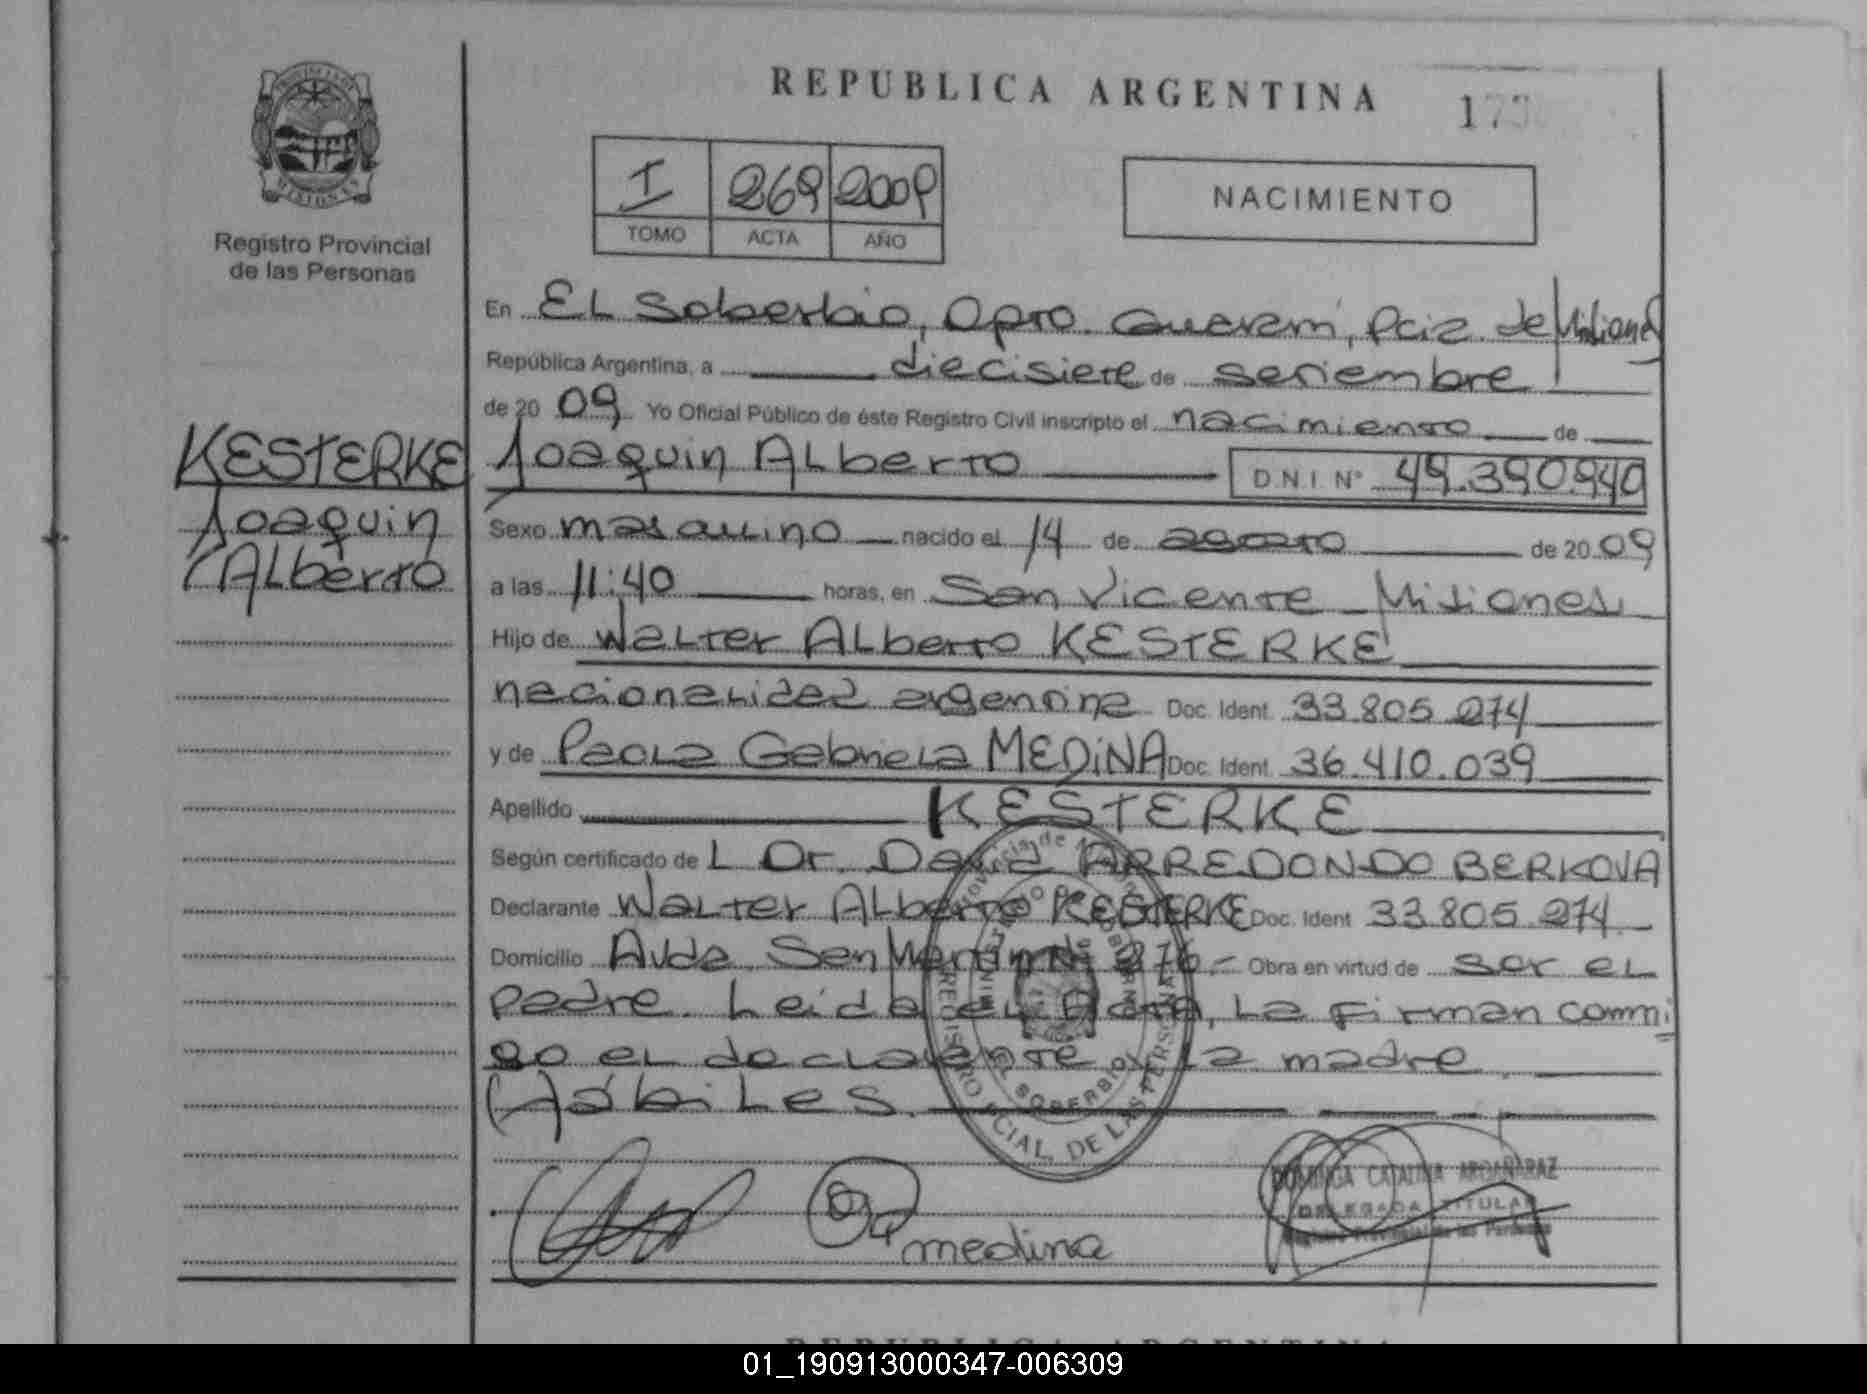 REPUBLICA ARGENTINA
PROVINCIA DE MISIONES
Registro Provincial
de las Personas
I 269 2009
TOMO ACTA AÑO
NACIMIENTO
En EL Soberbio, Dpto. Guaraní, Pcia. de Misiones
República Argentina, a diecisiete de setiembre
de 2009 Yo Oficial Público de éste Registro Civil inscripto el nacimiento de
KESTERKE
Joaquin
Alberto
Joaquin Alberto D.N.I. Nº 49.390.940
Sexo masculino nacido el 14 de agosto de 2009
a las 11:40 horas, en San Vicente - Misiones
Hijo de Walter Alberto KESTERKE
nacionalidad argentina Doc. Ident. 33.805.274
y de Paola Gabriela MEDiNA Doc. Ident. 36.410.039
Apellido KESTERKE
Según certificado de L Dr. David ARREDONDO BERKOVA
Declarante Walter Alberto KESTERKE Doc. Ident. 33.805.274
Domicilio Avda. San Martin Nº 276.- Obra en virtud de ser el
padre. Leida el Acta, La Firman conmi
go el declarante y la madre.
Hábiles.
REGISTRO PROVINCIAL DE LAS PERSONAS
EL SOBERBIO
medina
DOMINGA CATALINA
DELEGADA TITULAR
Registro Provincial de las Personas
REPUBLICA ARGENTINA
01_190913000347-006309